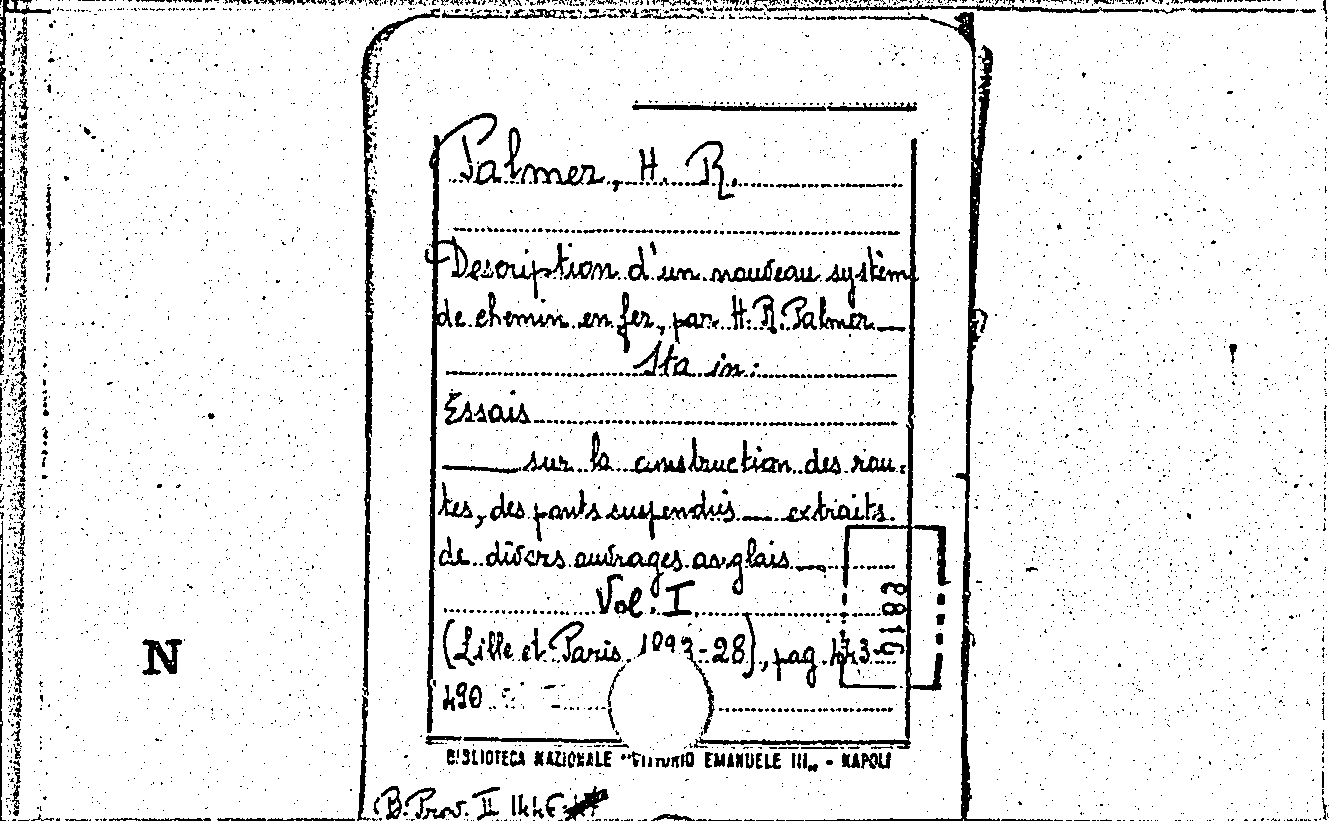 Palmer, H. R.
Description d'un nouveau systèm
de chemin en fer, par H. R. Palmer —
Sta in:
Essais
— sur la construction des rou-
tes, des ponts suspendus — extraits
de divers ouvrages anglais —
Vol. I
(Lille et Paris -28), pag.
490
BIBLIOTECA NAZIONALE "VITTORIO EMANUELE III„ - NAPOLI
B. Prov. II
N